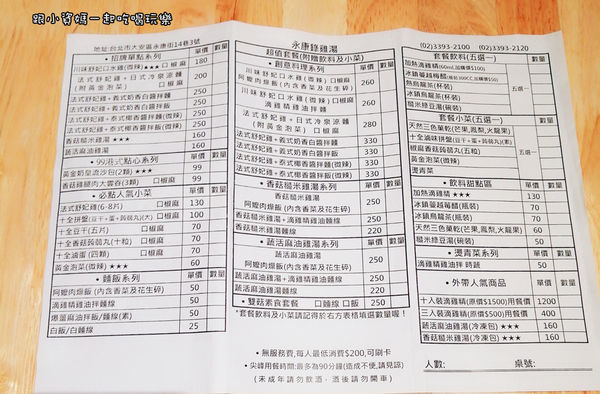 跟小資媽一起吃喝玩樂
地址:台北市大安區永康街14巷3號
• 招牌單點系列 單價 數量
川味舒妃口水雞(微辣)★★★ 口椒麻 180
法式舒妃雞+日式冷泉涼麵
(附黃金泡菜) 口椒麻 200
法式舒妃雞+義式奶香白醬拌麵
法式舒妃雞+義式奶香白醬拌飯
法式舒妃雞+泰式椰香醬拌麵(微辣)
法式舒妃雞+泰式椰香醬拌飯(微辣)
香菇糙米雞湯 ★★★ 160
蔬活麻油雞湯 160
• 99港式點心系列 單價 數量
黃金奶皇流沙包(2顆) ★★★ 99
香菇雞腿肉大雲吞(3顆) 口椒麻 99
• 必點人氣小菜 單價 數量
法式舒妃雞(6-8片) 口椒麻 130
十全拼盤(豆干+蛋+蒟蒻丸)(大) 口椒麻 100
十全豆干(五片) 口椒麻 70
十全香菇蒟蒻丸(十粒) 口椒麻 70
十全滷蛋(四顆) 口椒麻 70
黃金泡菜(微辣) ★★★ 60
• 麵飯系列 單價 數量
阿嬤肉燥飯(內含香菜及花生碎) 50
滴雞精雞油拌麵線 50
爆薑麻油拌飯/麵線(素) 50
白飯/白麵線 25
永康鋒雞湯
超值套餐(附贈飲料及小菜)
• 創意料理系列 單價 數量
川味舒妃口水雞(微辣) 口椒麻
阿嬤肉燥飯(內含香菜及花生碎) 260
川味舒妃口水雞(微辣) 口椒麻
滴雞精雞油拌麵 260
法式舒妃雞+日式冷泉涼麵
(附黃金泡菜) 口椒麻 280
法式舒妃雞+義式奶香白醬拌麵 330
法式舒妃雞+義式奶香白醬拌飯 330
法式舒妃雞+泰式椰香醬拌麵(微辣) 330
法式舒妃雞+泰式椰香醬拌飯(微辣) 330
• 香菇糙米雞湯系列 單價 數量
香菇糙米雞湯
阿嬤肉燥飯(內含香菜及花生碎) 250
香菇糙米雞湯+滴雞精雞油麵線 250
香菇糙米雞湯 220
• 蔬活麻油雞湯系列 單價 數量
蔬活麻油雞湯
阿嬤肉燥飯(內含香菜及花生碎) 250
蔬活麻油雞湯+滴雞精雞油麵線 250
蔬活麻油雞湯 220
• 雙菇素食套餐 口麵線 口飯 250
*套餐飲料及小菜請記得於右方表格填選數量喔!
• 無服務費,每人最低消費$200,可刷卡
• 尖峰用餐時間:最多為90分鐘(造成不便,請見諒)
(未成年請勿飲酒,酒後請勿開車)
(02)3393-2100 (02)3393-2120
套餐飲料(五選一) 數量
加熱滴雞精(60mL加價$100)
五選一
熱烏龍茶(杯裝)
冰鎮烏龍茶(杯裝)
糙米綠豆湯(碗裝)
套餐小菜(五選一) 數量
天然三色菓乾(芒果,鳳梨,火龍果)
十全滷味拼盤(豆干+蛋+蒟蒻丸)
椒麻香菇蒟蒻丸(五粒) 五選一
黃金泡菜(微辣)
燙青菜
• 飲料甜點區 單價 數量
加熱滴雞精 ★★★ 130
冰鎮蔓越莓醋(瓶裝) 50
冰鎮烏龍茶(瓶裝) 70
天然三色菓乾(芒果,鳳梨,火龍果) 60
糙米綠豆湯(碗裝) 50
• 燙青菜系列 單價 數量
滴雞精雞油拌 時蔬 50
• 外帶人氣商品 單價 數量
十入裝滴雞精(原價$1500)用餐價 1200
三入裝滴雞精(原價$500)用餐價 400
蔬活麻油雞湯(冷凍包) ★★★ 160
香菇糙米雞湯(冷凍包) ★★★ 160
人數: 桌號: